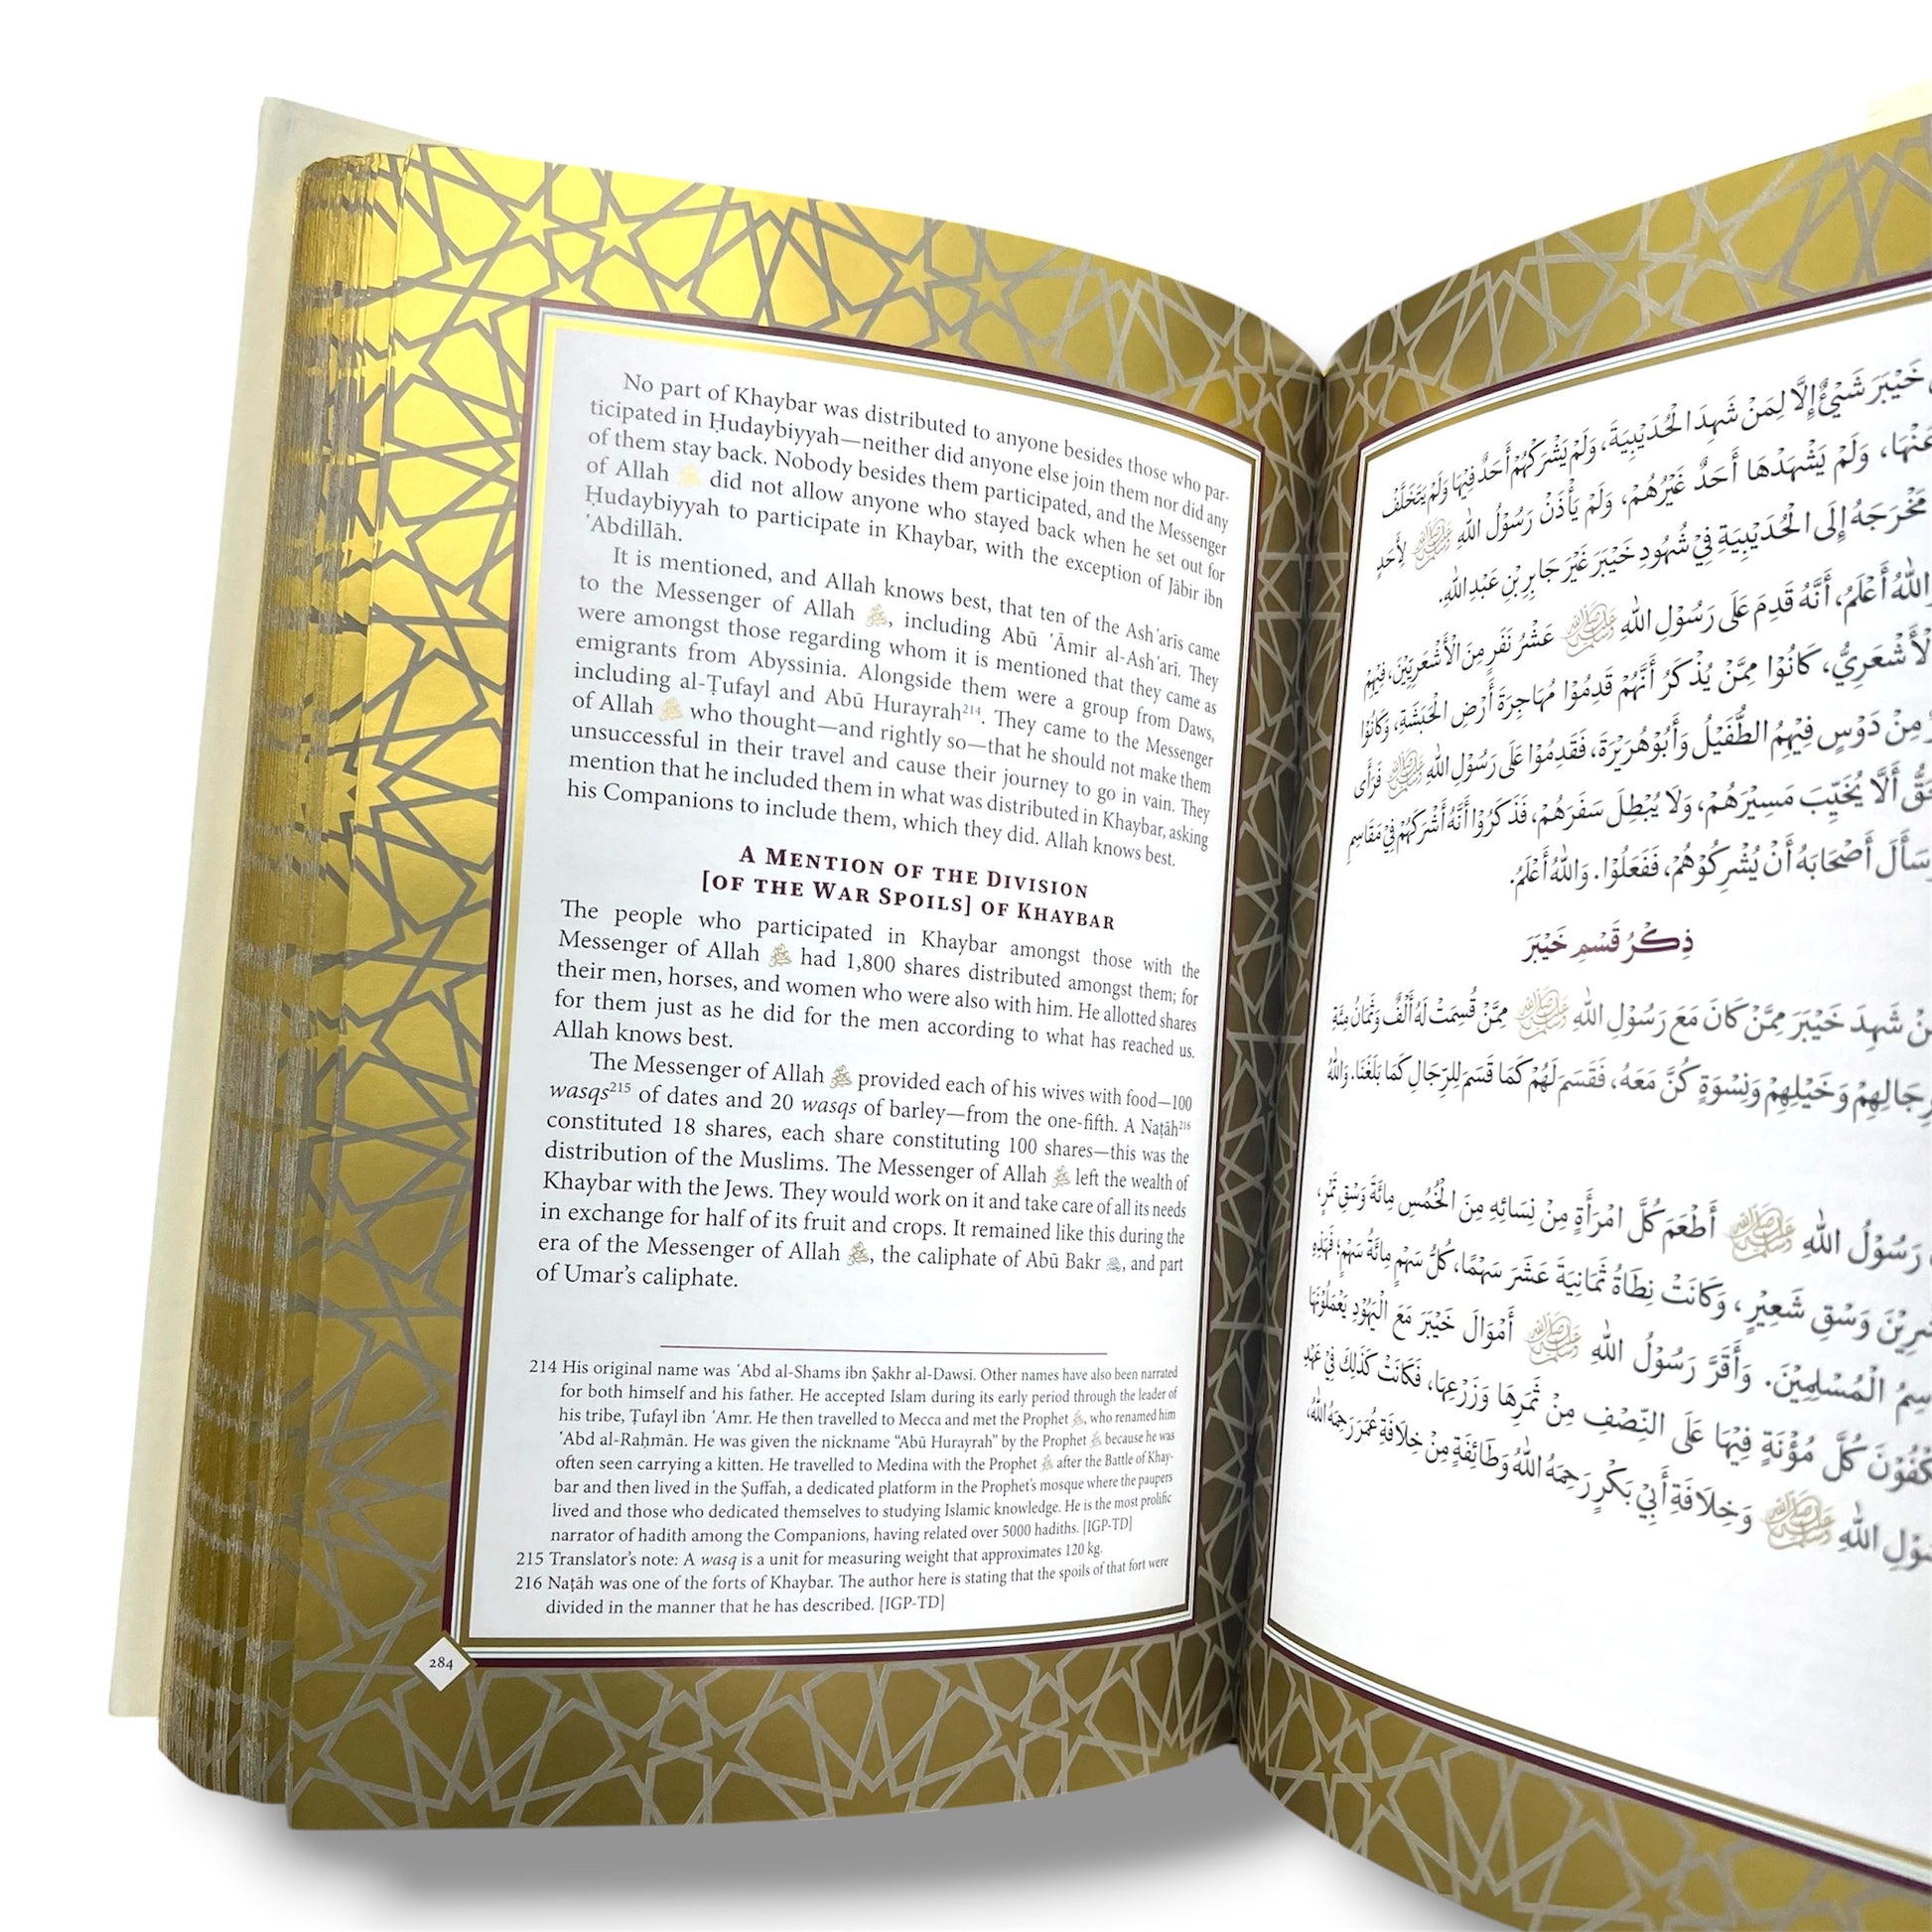 No part of Khaybar was distributed to anyone besides those who par-
ticipated in Ḥudaybiyyah—neither did anyone else join them nor did any
of them stay back. Nobody besides them participated, and the Messenger
of Allah ﷺ did not allow anyone who stayed back when he set out for
Ḥudaybiyyah to participate in Khaybar, with the exception of Jābir ibn
ʿAbdillāh.
It is mentioned, and Allah knows best, that ten of the Ashʿarīs came
to the Messenger of Allah ﷺ, including Abū ʿĀmir al-Ashʿarī. They
were amongst those regarding whom it is mentioned that they came as
emigrants from Abyssinia. Alongside them were a group from Daws,
including al-Ṭufayl and Abū Hurayrah²¹⁴. They came to the Messenger
of Allah ﷺ who thought—and rightly so—that he should not make them
unsuccessful in their travel and cause their journey to go in vain. They
mention that he included them in what was distributed in Khaybar, asking
his Companions to include them, which they did. Allah knows best.
A Mention of the Division
[of the War Spoils] of Khaybar
The people who participated in Khaybar amongst those with the
Messenger of Allah ﷺ had 1,800 shares distributed amongst them; for
their men, horses, and women who were also with him. He allotted shares
for them just as he did for the men according to what has reached us.
Allah knows best.
The Messenger of Allah ﷺ provided each of his wives with food—100
wasqs²¹⁵ of dates and 20 wasqs of barley—from the one-fifth. A Naṭāh²¹⁶
constituted 18 shares, each share constituting 100 shares—this was the
distribution of the Muslims. The Messenger of Allah ﷺ left the wealth of
Khaybar with the Jews. They would work on it and take care of all its needs
in exchange for half of its fruit and crops. It remained like this during the
era of the Messenger of Allah ﷺ, the caliphate of Abū Bakr, and part
of Umar's caliphate.
214 His original name was ʿAbd al-Shams ibn Ṣakhr al-Dawsī. Other names have also been narrated
for both himself and his father. He accepted Islam during its early period through the leader of
his tribe, Ṭufayl ibn ʿAmr. He then travelled to Mecca and met the Prophet ﷺ, who renamed him
ʿAbd al-Raḥmān. He was given the nickname “Abū Hurayrah” by the Prophet ﷺ because he was
often seen carrying a kitten. He travelled to Medina with the Prophet ﷺ after the Battle of Khay-
bar and then lived in the Ṣuffah, a dedicated platform in the Prophet's mosque where the paupers
lived and those who dedicated themselves to studying Islamic knowledge. He is the most prolific
narrator of hadith among the Companions, having related over 5000 hadiths. [IGP-TD]
215 Translator's note: A wasq is a unit for measuring weight that approximates 120 kg.
216 Naṭāh was one of the forts of Khaybar. The author here is stating that the spoils of that fort were
divided in the manner that he has described. [IGP-TD]
284
خَيْبَرَ شَيْئٌ إِلَّا لِمَنْ شَهِدَ الْحُدَيْبِيَةَ، وَلَمْ يَشْرَكْهُمْ أَحَدٌ فِيْهَا وَلَمْ يَتَخَلَّفْ
عَنْهَا، وَلَمْ يَشْهَدْهَا أَحَدٌ غَيْرُهُمْ، وَلَمْ يَأْذَنْ رَسُوْلُ اللهِ ﷺ لِأَحَدٍ
مَخْرَجَهُ إِلَى الْحُدَيْبِيَةِ فِيْ شُهُودِ خَيْبَرَ غَيْرَ جَابِرِ بْنِ عَبْدِ اللهِ.
اللهُ أَعْلَمُ، أَنَّهُ قَدِمَ عَلَى رَسُوْلِ اللهِ ﷺ عَشْرُ نَفَرٍ مِنَ الْأَشْعَرِيِّيْنَ، فِيْهِمْ
الْأَشْعَرِيُّ، كَانُوْا مِمَّنْ يُذْكَرُ أَنَّهُمْ قَدِمُوْا مُهَاجِرَةَ أَرْضِ الْحَبَشَةِ، وَكَانُوْا
مِنْ دَوْسٍ فِيْهِمُ الطُّفَيْلُ وَأَبُوْ هُرَيْرَةَ، فَقَدِمُوْا عَلَى رَسُوْلِ اللهِ ﷺ فَرَأَى
أَلَّا يُخَيِّبَ مَسِيْرَهُمْ، وَلَا يُبْطِلَ سَفَرَهُمْ، فَذَكَرُوْا أَنَّهُ أَشْرَكَهُمْ فِيْ مَقَاسِمِ
سَأَلَ أَصْحَابَهُ أَنْ يُشْرِكُوْهُمْ، فَفَعَلُوْا. وَاللهُ أَعْلَمُ.
ذِكْرُ قَسْمِ خَيْبَرَ
شَهِدَ خَيْبَرَ مِمَّنْ كَانَ مَعَ رَسُوْلِ اللهِ ﷺ مِمَّنْ قُسِمَتْ لَهُ أَلْفٌ وَثَمَانُ مِئَةِ
وَخَيْلِهِمْ وَنِسْوَةٍ كُنَّ مَعَهُ، فَقَسَمَ لَهُمْ كَمَا قَسَمَ لِلرِّجَالِ كَمَا بَلَغَنَا. وَاللهُ
رَسُوْلُ اللهِ ﷺ أَطْعَمَ كُلَّ امْرَأَةٍ مِنْ نِسَائِهِ مِنَ الْخُمُسِ مِائَةَ وَسْقِ تَمْرٍ،
وَسْقِ شَعِيْرٍ، وَكَانَتْ نِطَاةُ ثَمَانِيَةَ عَشَرَ سَهْمًا، كُلُّ سَهْمٍ مِائَةُ سَهْمٍ؛ فَهَذِهِ
الْمُسْلِمِيْنَ. وَأَقَرَّ رَسُوْلُ اللهِ ﷺ أَمْوَالَ خَيْبَرَ مَعَ الْيَهُوْدِ يَعْمَلُوْنَهَا
كُلَّ مُؤْنَةٍ فِيْهَا عَلَى النِّصْفِ مِنْ ثَمَرِهَا وَزَرْعِهَا، فَكَانَتْ كَذَلِكَ فِيْ عَهْدِ
اللهِ ﷺ وَخِلَافَةِ أَبِيْ بَكْرٍ رَحِمَهُ اللهُ وَطَائِفَةٍ مِنْ خِلَافَةِ عُمَرَ رَحِمَهُ اللهُ،